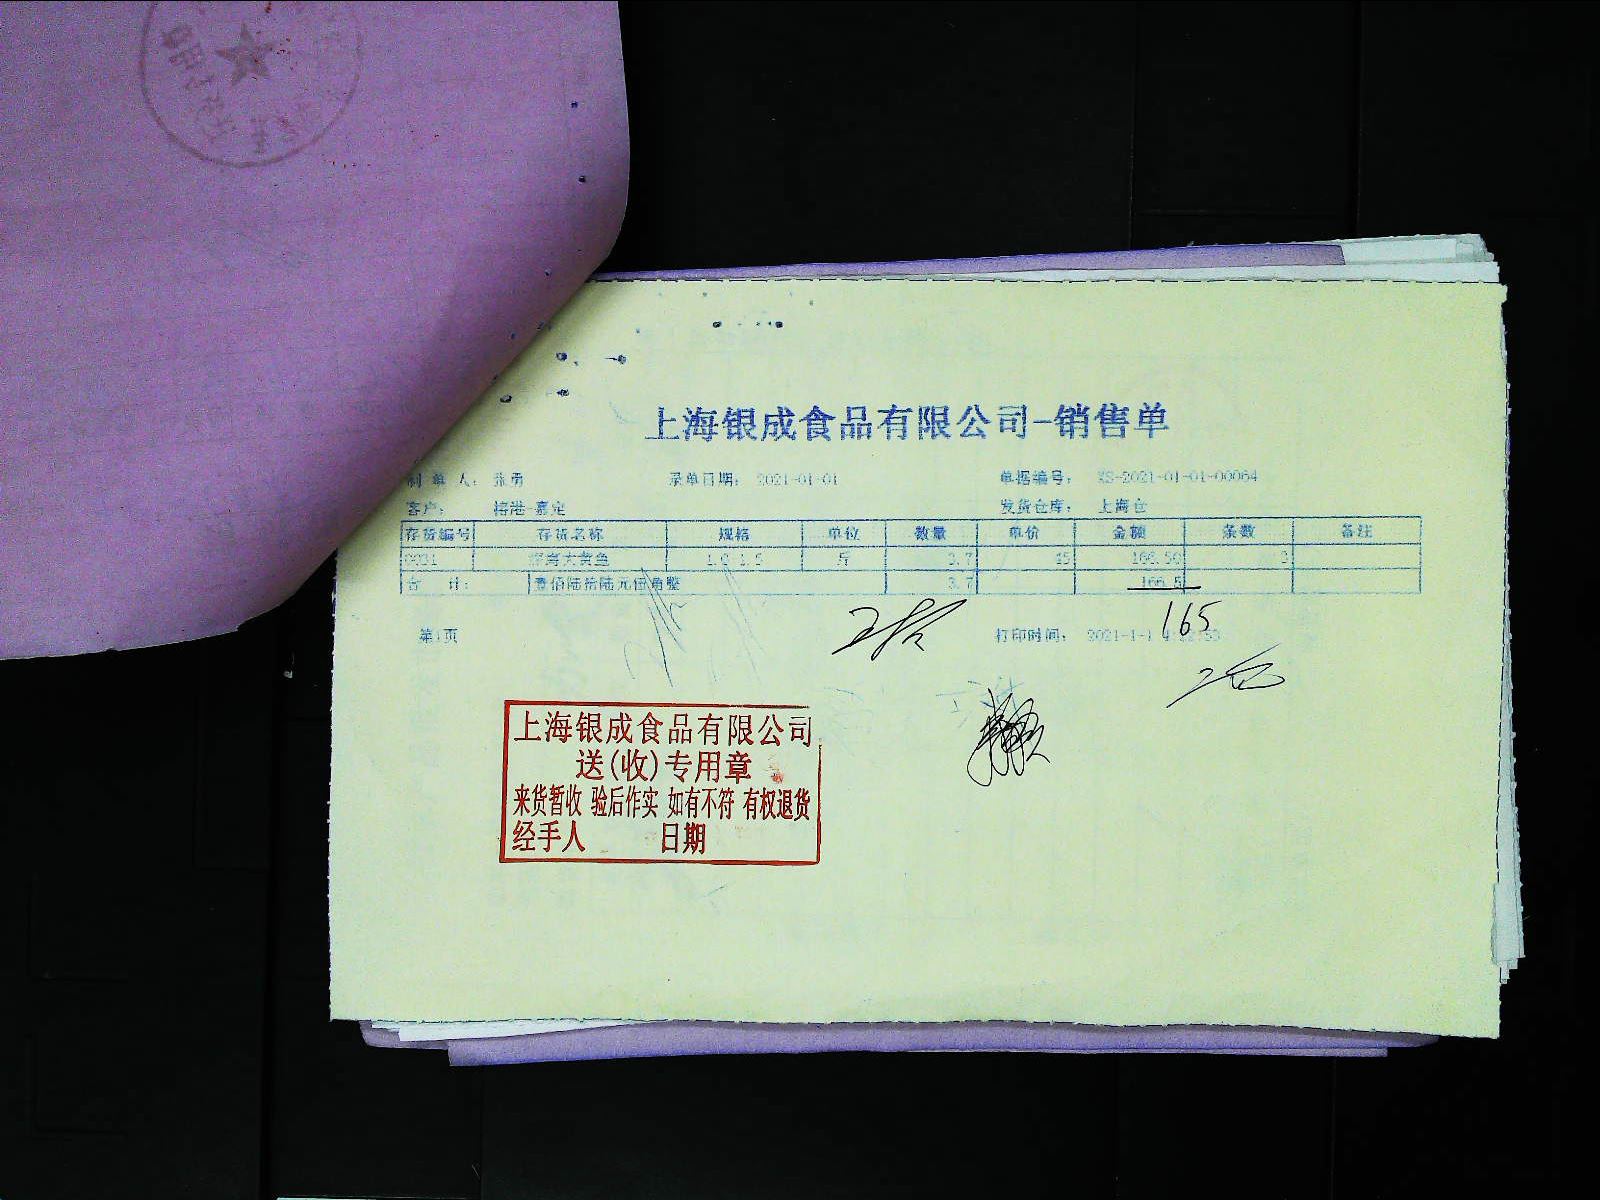 上海银成食品有限公司-销售单
制单人： 张勇 录单日期： 2021-01-01 单据编号： XS-2021-01-01-00064
客户： 榕港-嘉定 发货仓库： 上海仓
存货编号 存货名称 规格 单位 数量 单价 金额 条数 备注
大黄鱼 斤 3.7 45 166.50 3
合 计： 壹佰陆拾陆元伍角整 3.7 166.5
165
第1页 打印时间： 2021-1-1
上海银成食品有限公司
送(收)专用章
来货暂收 验后作实 如有不符 有权退货
经手人 日期